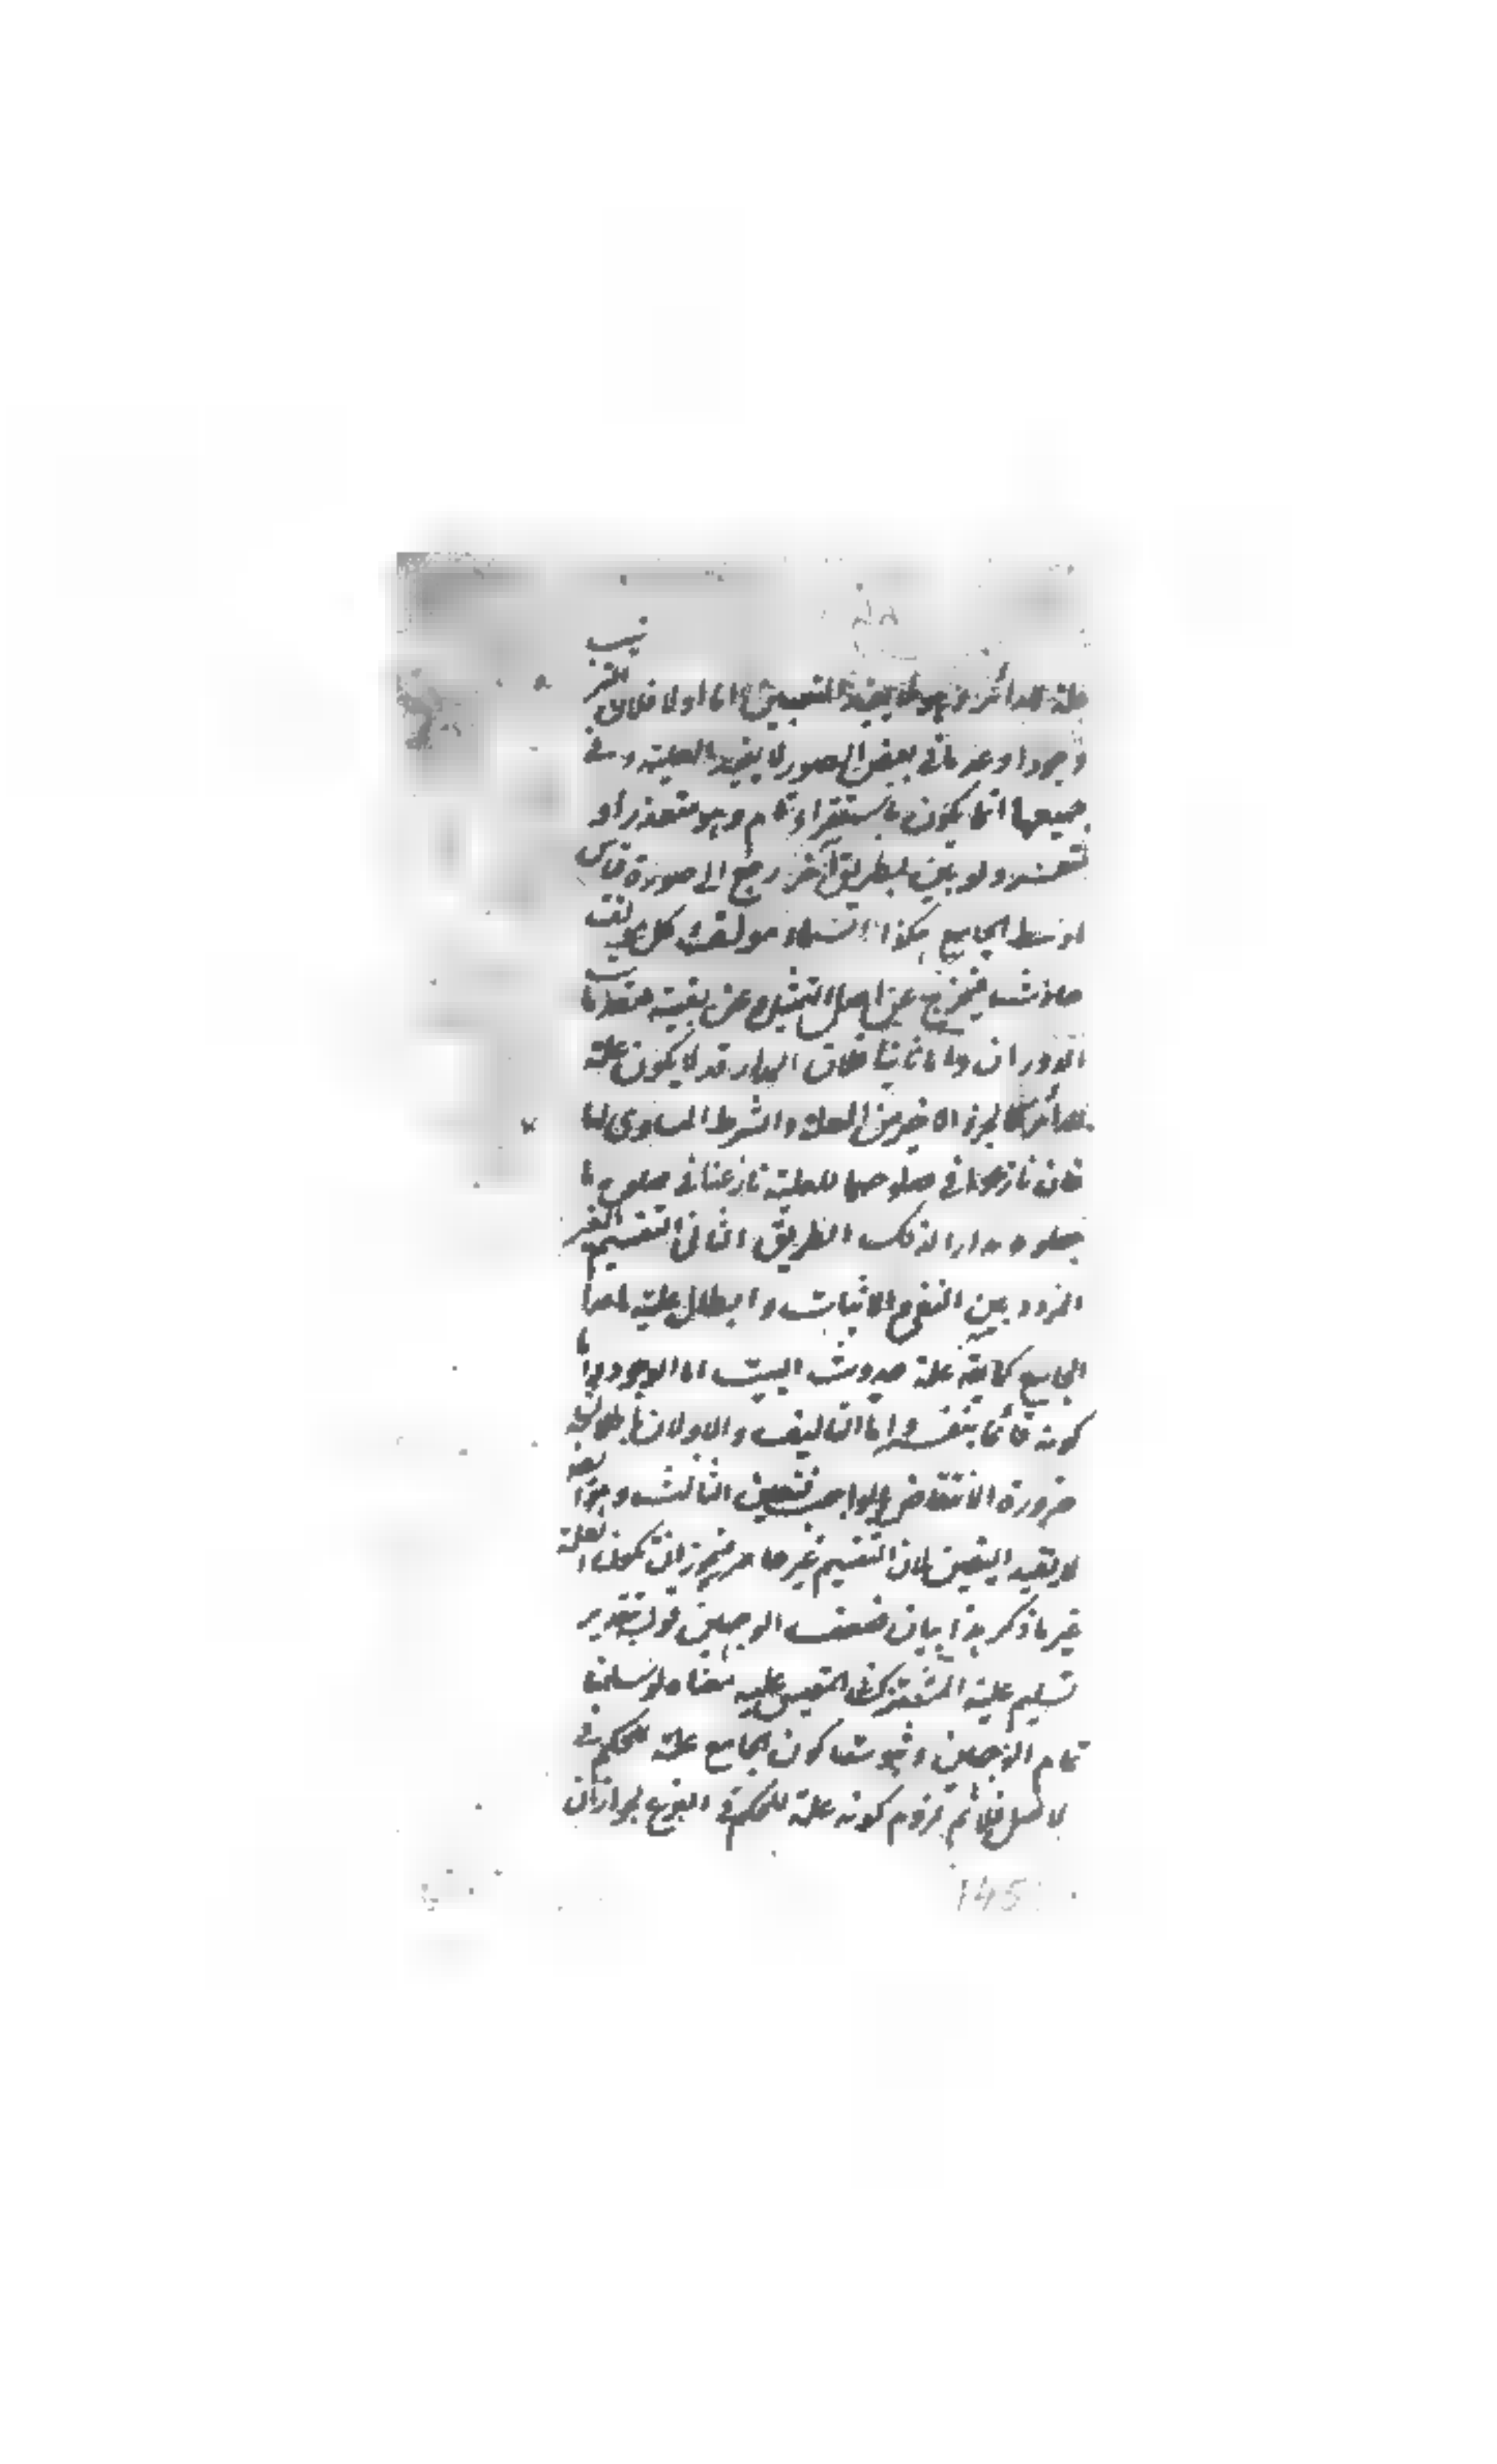 علة للدائر وهو لا يفيد اليقين اما اولا فلان الترتيب
وجودا وعدما في بعض الصور لا يفيد العلية وفي
جميعها انما يكون باستقراء تام وهو متعذر أو
متعسر ولو بين بطريق آخر رجع الى صورة قياس
اوسط الجامع هكذا السماء مؤلف وكل مؤلف
حادث فيخرج عن اصل التمثيل وعن بقية مقدمات
الدوران واما ثانيا فلان المدار قد لا يكون علة
للدائر كالجزء الاخير من العلة والشرط المساوى لها
فان نازعوا في صلوحها للعلية نازعنا في صلوح ما
جعلوه مدارا لذلك الطريق الثانى التقسيم الغير
المردد بين النفى والاثبات وابطال علية ما عدا
الجامع كما يقال علة حدوث البيت اما الوجود واما
كونه قائما بنفسه واما التأليف والاولان باطلان
ضرورة الانتقاض بالواجب فتعين الثالث وهو ايضا
لا يفيد اليقين لان التقسيم غير حاصر فيجوز ان يكون العلة
غير ما ذكر هذا بيان ضعف الوجهين قوله بتقدير
تسليم علية المشترك في المقيس عليه معناه لو سلمنا
تمام الوجهين وثبوت كون الجامع علة للحكم في
الاصل فلا ثم لزوم كونه علة للحكم في الفرع لجواز ان
145